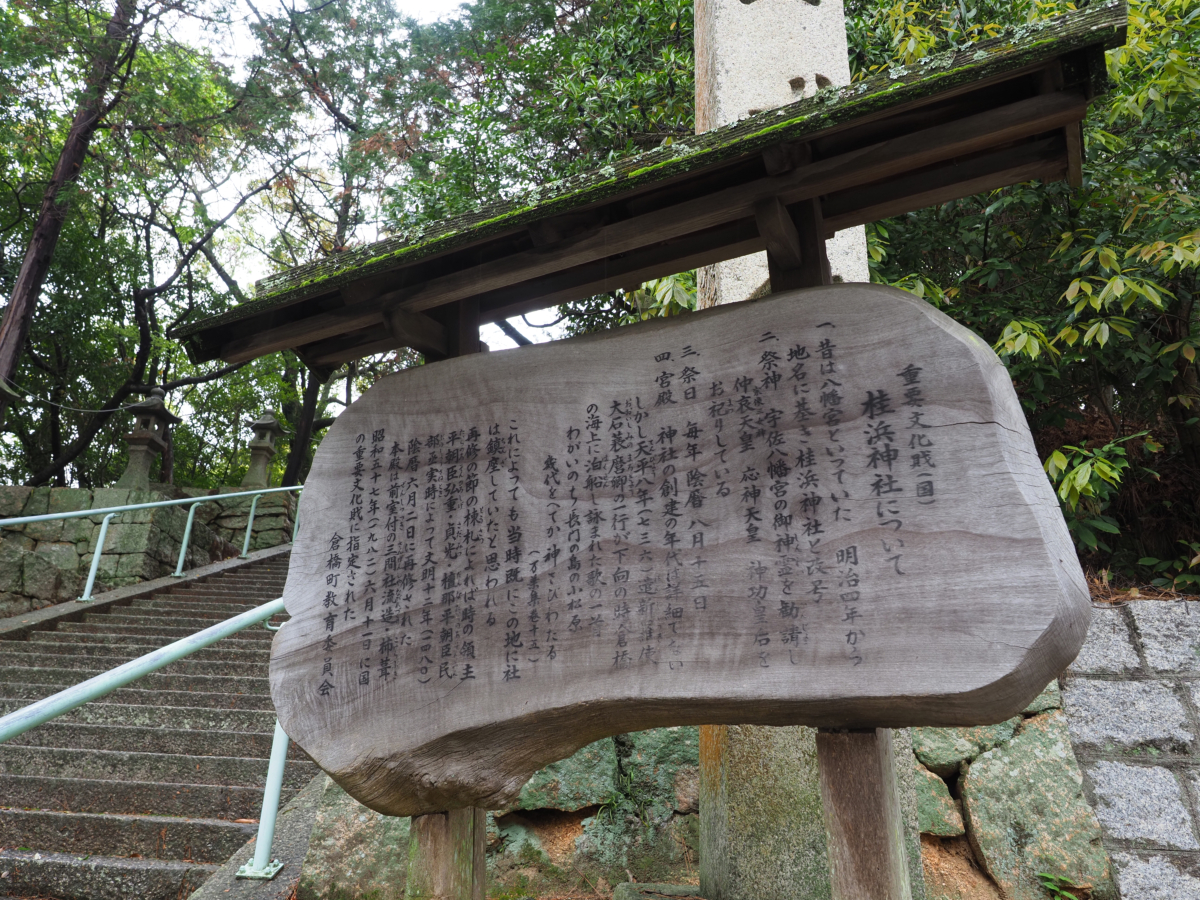 重要文化戝(国)
桂浜神社について
一、昔は八幡宮といっていた 明治四年から
地名に基き桂浜神社と改号
二、祭神 宇佐八幡宮の御神霊を勧請し
仲哀天皇 応神天皇 神功皇后を
お祀りしている
三、祭日 毎年 陰暦 八月十五日
四、宮殿 神社の創建の年代は詳細でない
しかし天平八年(七三六)遣新羅使
大石蓑麿卿の一行が下向の時倉橋
の海上に泊船し詠まれた歌の一節
わがいのち長門の島の小松原
幾代をへてか神さびわたる
(万葉集巻十五)
これによっても当時既にこの地に社
は鎮座していたと思われる
再修の節の棟札によれば時の領主
平朝臣弘重 貞光 檀那平朝臣民
部丞実時によって文明十二年(一四八〇)
陰暦六月二日に再修された
本殿は前室付の三間社流造 柿葺
昭和五十七年(一九八二)六月十一日に国
の重要文化戝に指定された
倉橋町教育委員会